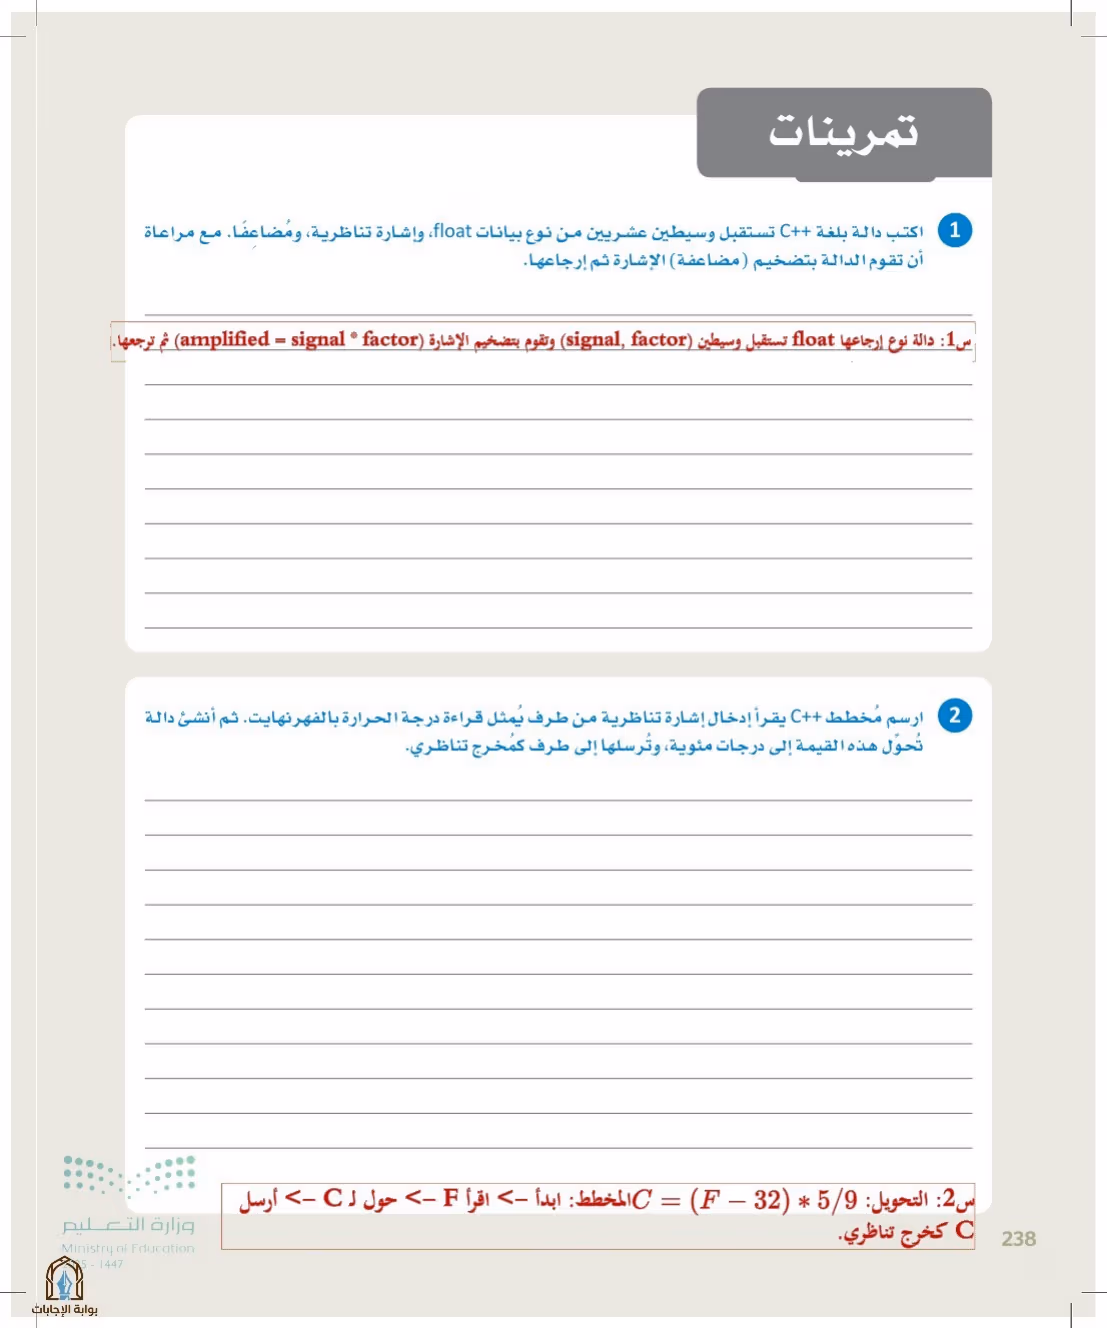 تمرينات
1 اكتب دالة بلغة C++ تستقبل وسيطين عشريين من نوع بيانات float، وإشارة تناظرية، ومُضاعِفًا. مع مراعاة
أن تقوم الدالة بتضخيم (مضاعفة) الإشارة ثم إرجاعها.
س1: دالة نوع إرجاعها float تستقبل وسيطين (signal, factor) وتقوم بتضخيم الإشارة (amplified = signal * factor) ثم ترجعها.
2 ارسم مُخطط C++ يقرأ إدخال إشارة تناظرية من طرف يُمثل قراءة درجة الحرارة بالفهرنهايت. ثم أنشئ دالة
تُحوِّل هذه القيمة إلى درجات مئوية، وتُرسلها إلى طرف كمُخرج تناظري.
س2: التحويل: C = (F − 32) * 5/9المخطط: ابدأ -> اقرأ F -> حول لـ C -> أرسل
C كخرج تناظري.
وزارة التعليم
Ministry of Education
5 - 1447
238
بوابة الإجابات